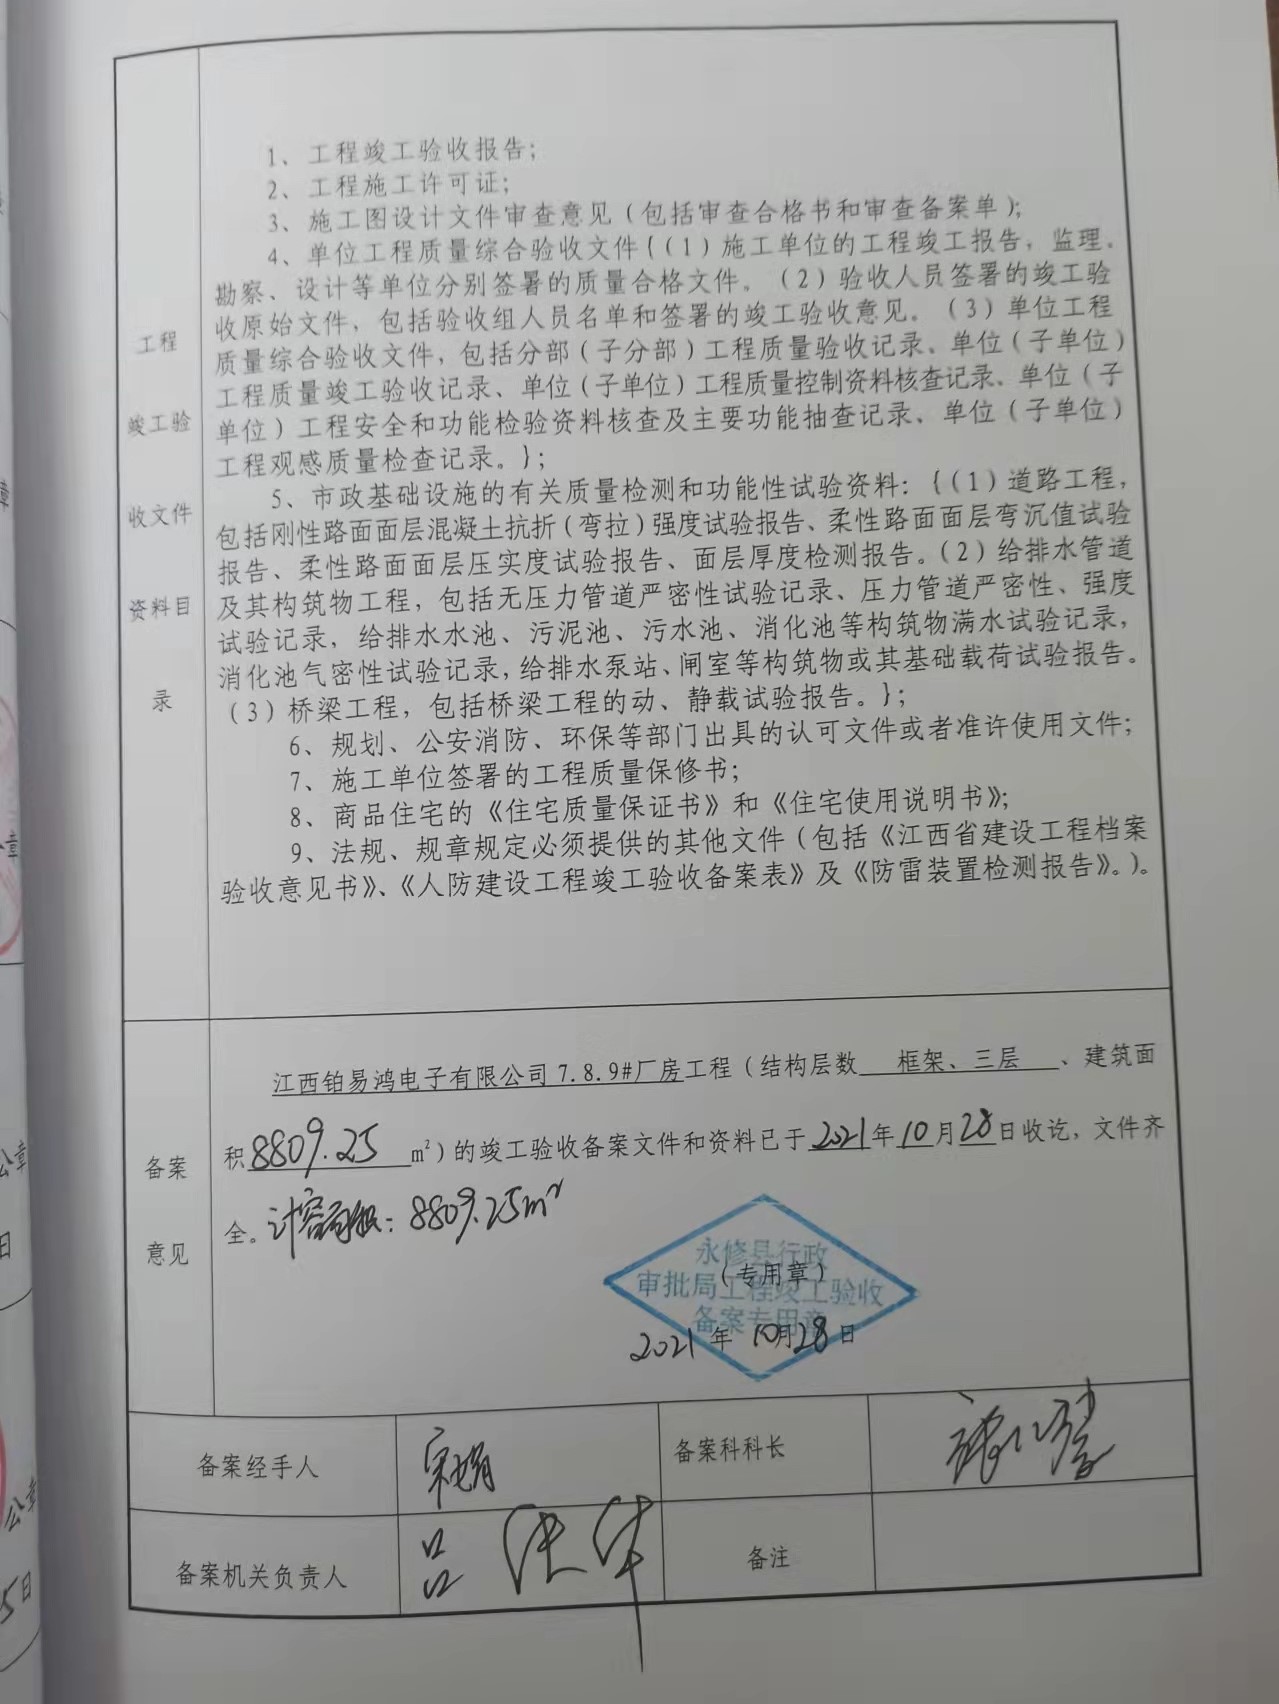 1、工程竣工验收报告；
2、工程施工许可证；
3、施工图设计文件审查意见（包括审查合格书和审查备案单）；
4、单位工程质量综合验收文件{（1）施工单位的工程竣工报告，监理、
勘察、设计等单位分别签署的质量合格文件。（2）验收人员签署的竣工验
收原始文件，包括验收组人员名单和签署的竣工验收意见。（3）单位工程
质量综合验收文件，包括分部（子分部）工程质量验收记录、单位（子单位）
工程质量竣工验收记录、单位（子单位）工程质量控制资料核查记录、单位（子
单位）工程安全和功能检验资料核查及主要功能抽查记录、单位（子单位）
工程观感质量检查记录。}；
5、市政基础设施的有关质量检测和功能性试验资料：{（1）道路工程，
包括刚性路面面层混凝土抗折（弯拉）强度试验报告、柔性路面面层弯沉值试验
报告、柔性路面面层压实度试验报告、面层厚度检测报告。（2）给排水管道
及其构筑物工程，包括无压力管道严密性试验记录、压力管道严密性、强度
试验记录，给排水水池、污泥池、污水池、消化池等构筑物满水试验记录，
消化池气密性试验记录，给排水泵站、闸室等构筑物或其基础载荷试验报告。
（3）桥梁工程，包括桥梁工程的动、静载试验报告。}；
6、规划、公安消防、环保等部门出具的认可文件或者准许使用文件；
7、施工单位签署的工程质量保修书；
8、商品住宅的《住宅质量保证书》和《住宅使用说明书》；
9、法规、规章规定必须提供的其他文件（包括《江西省建设工程档案
验收意见书》、《人防建设工程竣工验收备案表》及《防雷装置检测报告》。）。
工程
竣工验
收文件
资料目
录
备案
意见
江西铂易鸿电子有限公司7.8.9#厂房工程（结构层数 框架、三层 、建筑面
积8809.25 m²）的竣工验收备案文件和资料已于2021年10月28日收讫，文件齐
全。计容面积：8809.25m²
永修县行政
审批局工程竣工验收
备案专用章
（专用章）
2021年10月28日
备案经手人
备案科科长
备案机关负责人
备注
公章
公章
5日